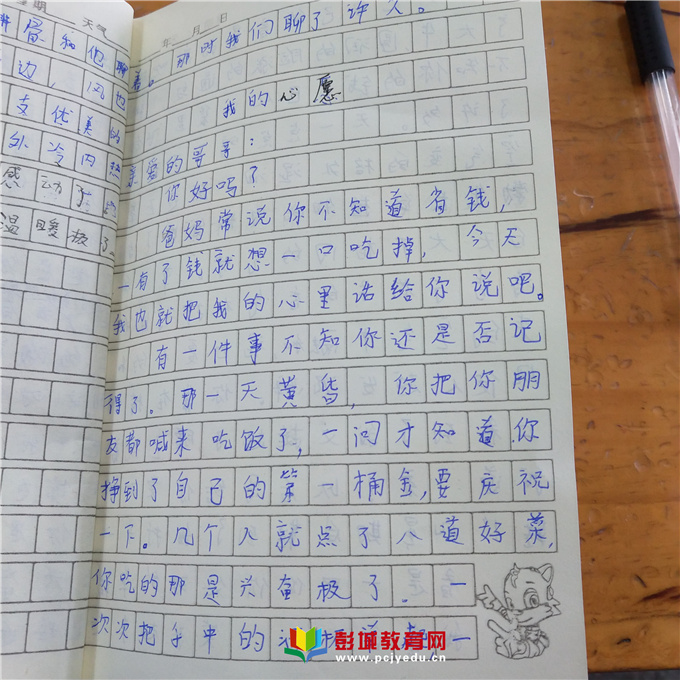 明 天气
年 月 日
和他
边，风也
支优美的
外冷内热
感动了
温暖极了。
着。那时我们聊了许久。
我的心愿
亲爱的哥哥：
你好吗？
爸妈常说你不知道省钱，
一有了钱就想一口吃掉，今天
我也就把我的心里话给你说吧。
有一件事不知你还是否记
得了。那一天黄昏，你把你朋
友都喊来吃饭了，一问才知道你
挣到了自己的第一桶金，要庆祝
一下。几个人就点了八道好菜，
你吃的那是兴奋极了。一
次次把手中的 一
彭城教育网
www.pcjyedu.cn